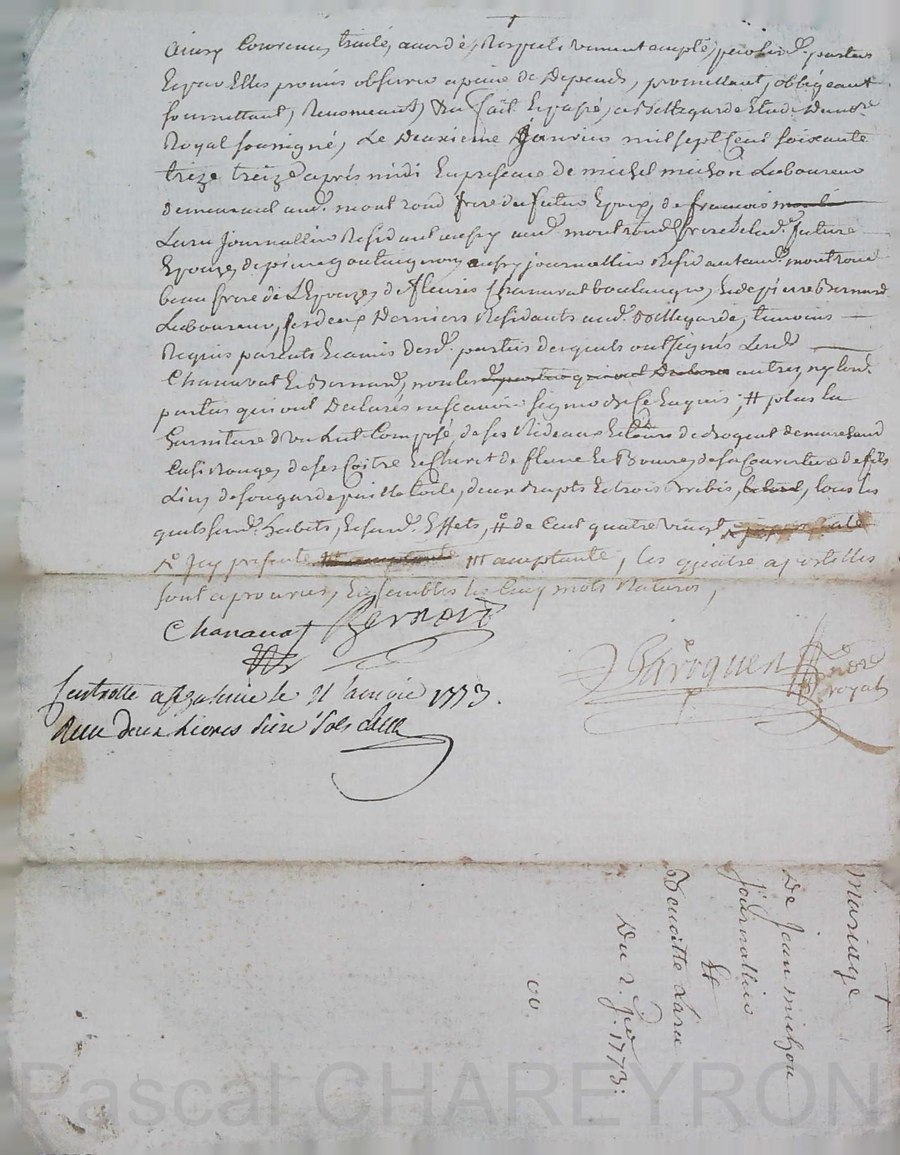 Ainsy Convenu, traité, accordé, Respectivement accepté, par lesd. parties
Et par Elles promis observer a peine de Depends, promettant, obligeant
soumettant, Renonceant, Du fait Et passé, a Bellegarde Etude Du no.re
Royal soussigné, Le Deuxieme Janvier mil sept Cent soixante
treize treize après midi En presence de michel michon Laboureur
demeurant aud. montrond frere du futur Epoux, de francois
Laru Journallier Résidant aussy aud. montrond frere de lad. future
Epouze, de pierre aussy journallier Résidant aud. montrond
beau frere de L'Epouze, de fleuris Chanavat boulanger, Et de pierre Bernard
Laboureur, Ces deux Derniers Résidants aud. Bellegarde, temoins
Requis parents Et amis desd. parties desquels ont signés Lesd.
Chanavat Et Bernard, non les autres, ny lesd.
parties qui ont Declarés ne scavoir signer de ce Enquis, # plus la
Garniture d'un Lit Composé de ses Rideaux Et tours de
de ses Coitre Et de plume Et Bourre, de sa Couverture de fils
deux drapts Et trois Brebis, tous les
quels habits, Et effets, # de Cent quatre vingt
presente comptante, les quatre apostilles
sont aprouvées, Ensembles les Cinq mots Raturés,
Chanavat Bernard
Baroquen no.re
royal
Controllé a le 11 Janvier 1773.
Reçu deux Livres seize sols
Mariage
De Jean michon
Journallier
Et
Benoitte Laru
Du 2. J.er 1773.
00.
Pascal CHAREYRON